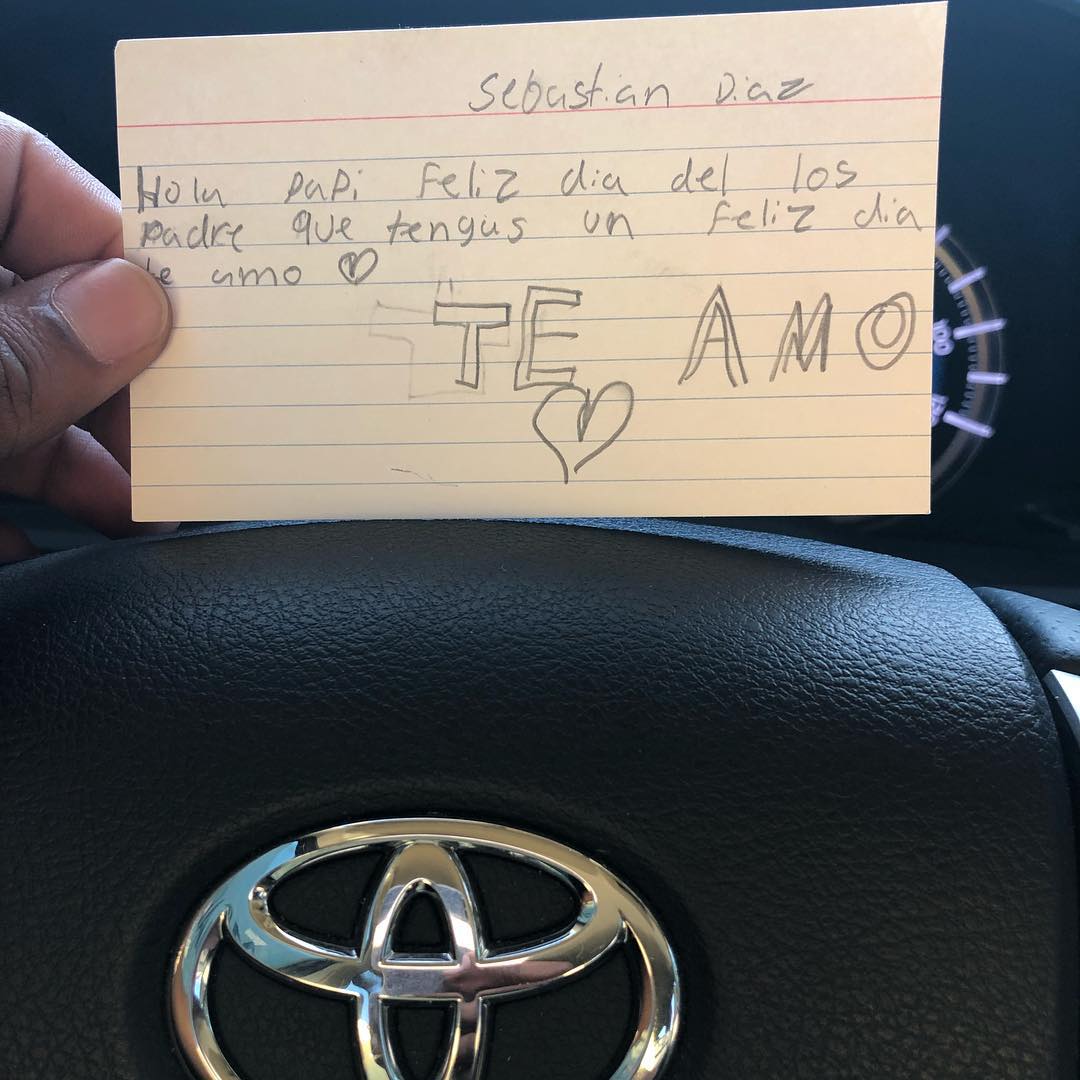 Sebastian Diaz
Hola papi Feliz dia del los
padre que tengas un feliz dia
te amo
TE AMO
100